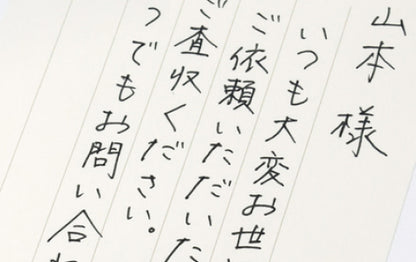 山本様
いつも大変お世
ご依頼いただいた
ご査収ください。
つでもお問い合わ